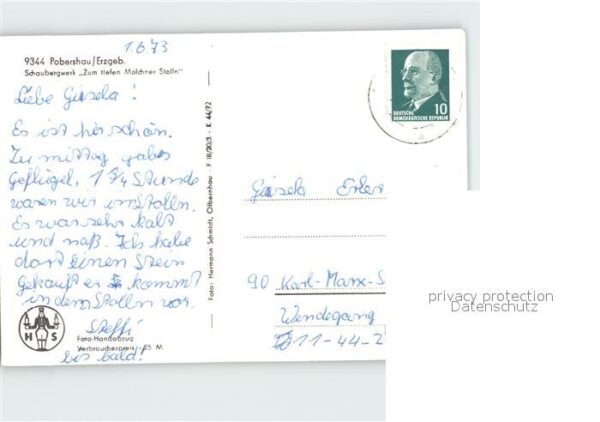 1.6.73
9344 Pobershau/Erzgeb.
Schaubergwerk „Zum tiefen Molchner Stolln"
Liebe Gisela!
Es ist hier schön.
Zu mittag gabes
Geflügel, 1 3/4 Stunde
waren wir im Stollen.
Es war sehr kalt
und naß. Ich habe
dort einen Stein
gekauft er kommt
in dem Stolln vor.
Steffi
bis bald!
H S
Foto-Handabzug
Verbraucherpreis M
Foto: Hermann Schmidt, Olbernhau F III/20/3 - K 44/72
10
DEUTSCHE
DEMOKRATISCHE REPUBLIK
Gisela Erler
90 Karl-Marx-S
Wendegang
11-44-2
privacy protection
Datenschutz